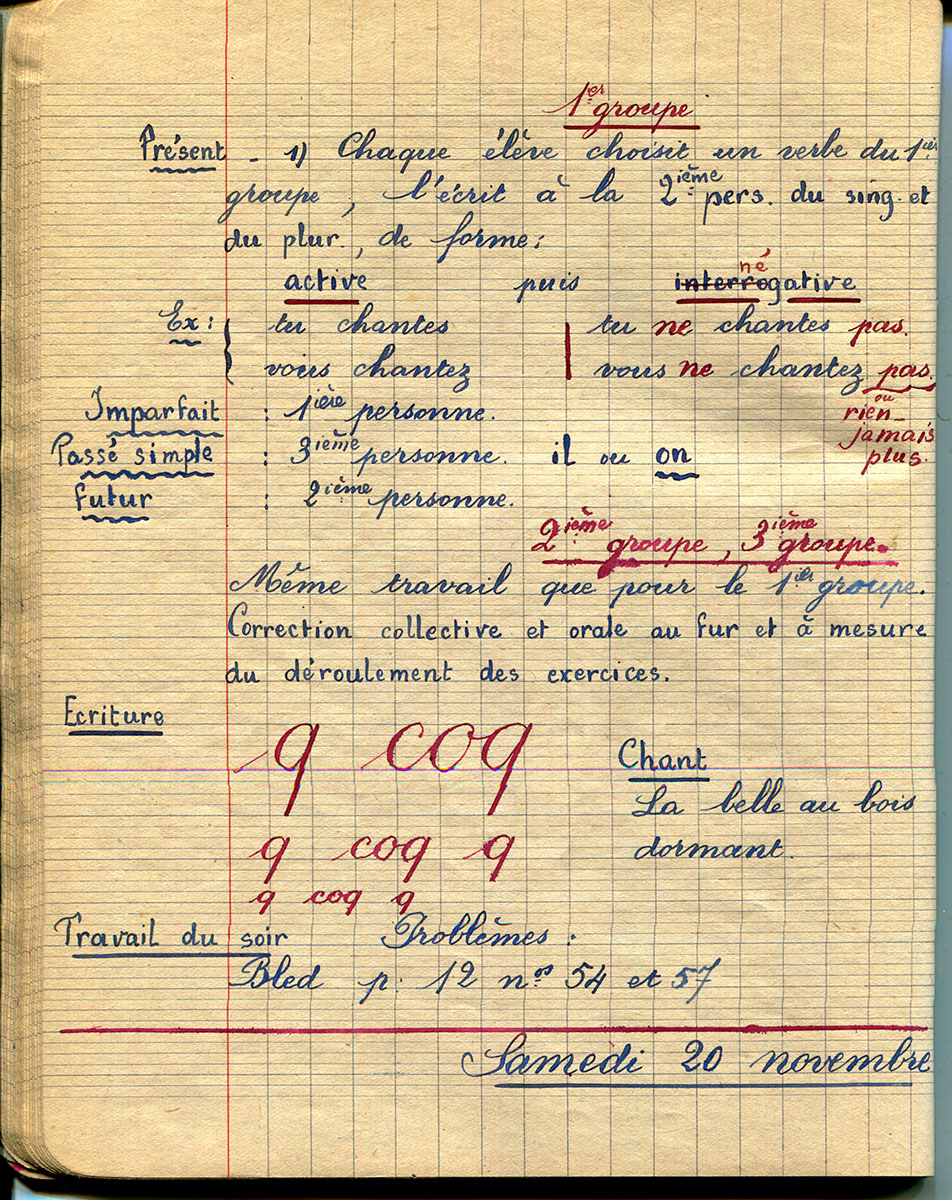 1er groupe
Présent - 1) Chaque élève choisit un verbe du 1ier
groupe, l'écrit à la 2ième pers. du sing. et
du plur., de forme :
active puis interrogative né
Ex : tu chantes tu ne chantes pas.
vous chantez vous ne chantez pas.
Imparfait : 1ière personne. ou rien
Passé simple : 3ième personne. il ou on jamais
futur : 2ième personne. plus.
2ième groupe, 3ième groupe.
Même travail que pour le 1ier groupe.
Correction collective et orale au fur et à mesure
du déroulement des exercices.
Ecriture
q coq
Chant
La belle au bois
dormant.
q coq q
q coq q
Travail du soir Problèmes :
Bled p. 12 nos 54 et 57
Samedi 20 novembre